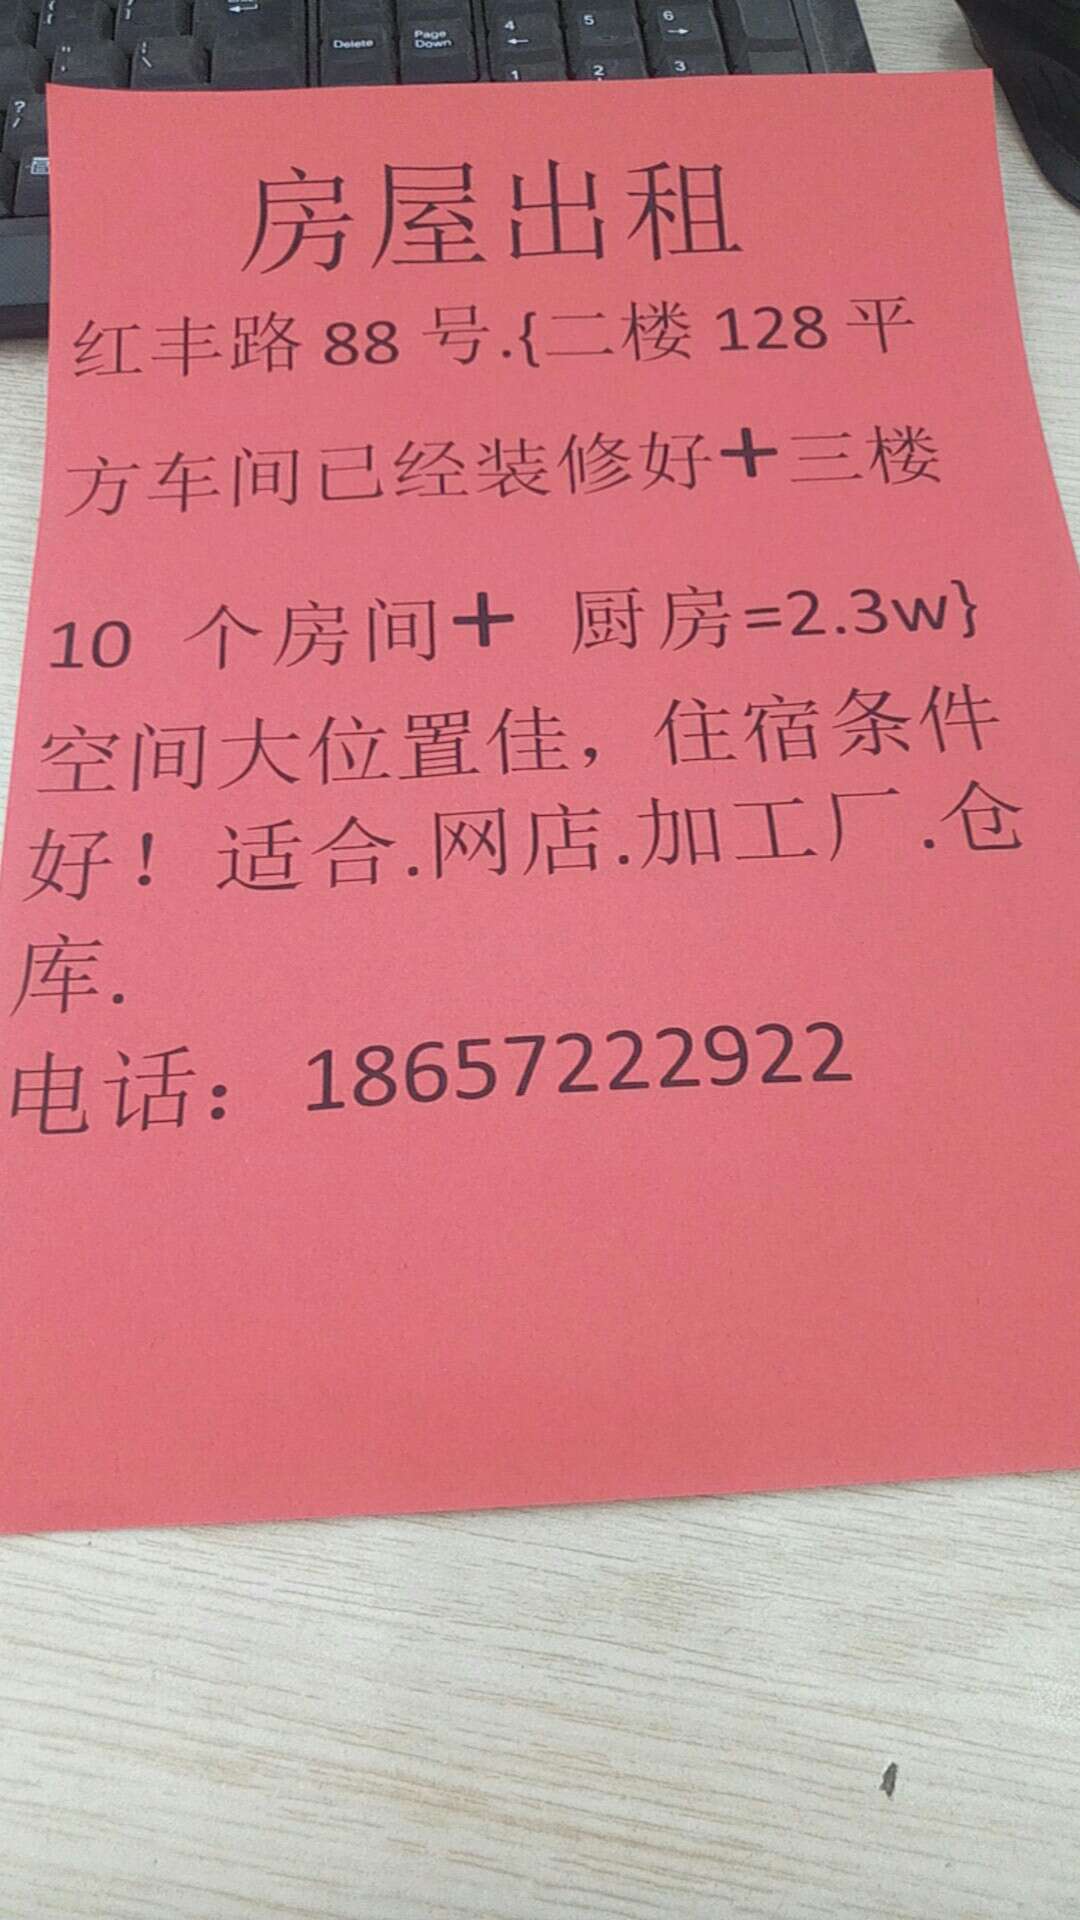 Delete
Page Down
4
5
6
1
2
3
房屋出租
红丰路 88 号.{二楼 128 平
方车间已经装修好+三楼
10 个房间+ 厨房=2.3w}
空间大位置佳，住宿条件
好！适合.网店.加工厂.仓
库.
电话：18657222922